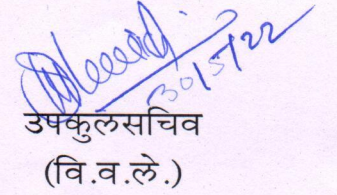 30/5/22
उपकुलसचिव
(वि.व.ले.)